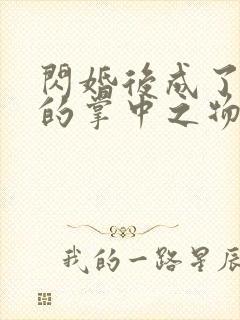 閃婚後成了
的掌中之物
我的一路星辰